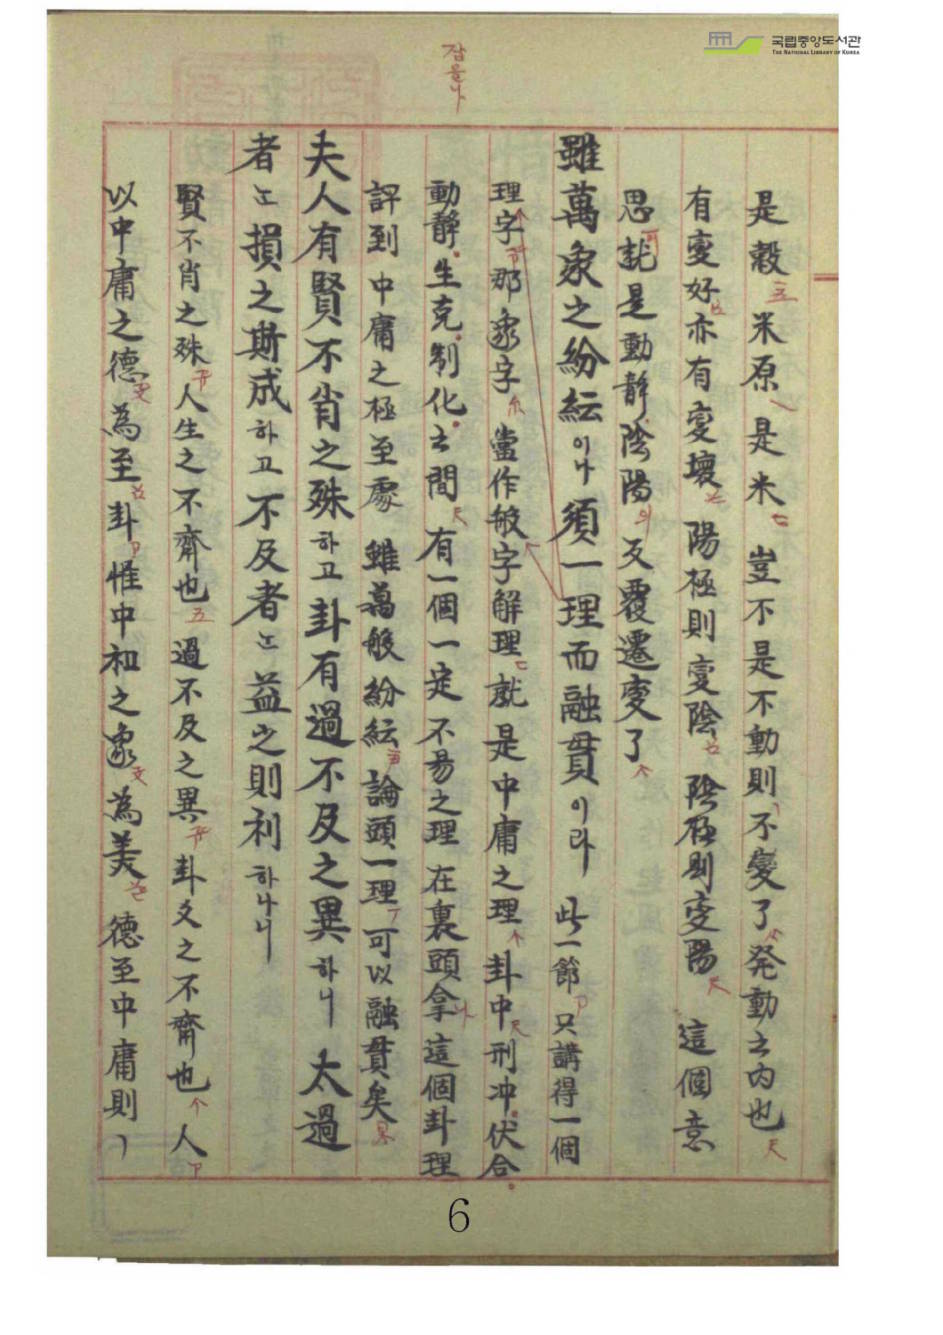 국립중앙도서관
THE NATIONAL LIBRARY OF KOREA
잡을나
是穀 米原 是米 豈不是不動則 不變了 発動之內也
有変好 亦有変壞 陽極則変陰 陰極則変陽 這個意
思 就是動静陰陽 反覆遷変了
雖萬象之紛紜이나 須一理而融貫이라 此一節 只講得一個
理字 那象字 當作般字解理 就是中庸之理 卦中 刑冲伏合
動静生克制化之間 有一個一定不易之理 在裏頭 拿這個卦理
評到中庸之極至處 雖萬般紛紜 論頭一理 可以融貫矣
夫人有賢不肖之殊하고 卦有過不及之異하니 太過
者는 損之斯成하고 不及者는 益之則利하나니
賢不肖之殊 人生之不齊也 過不及之異 卦爻之不齊也 人
以中庸之德 為至 卦 惟中和之象 為美 德至中庸則
6